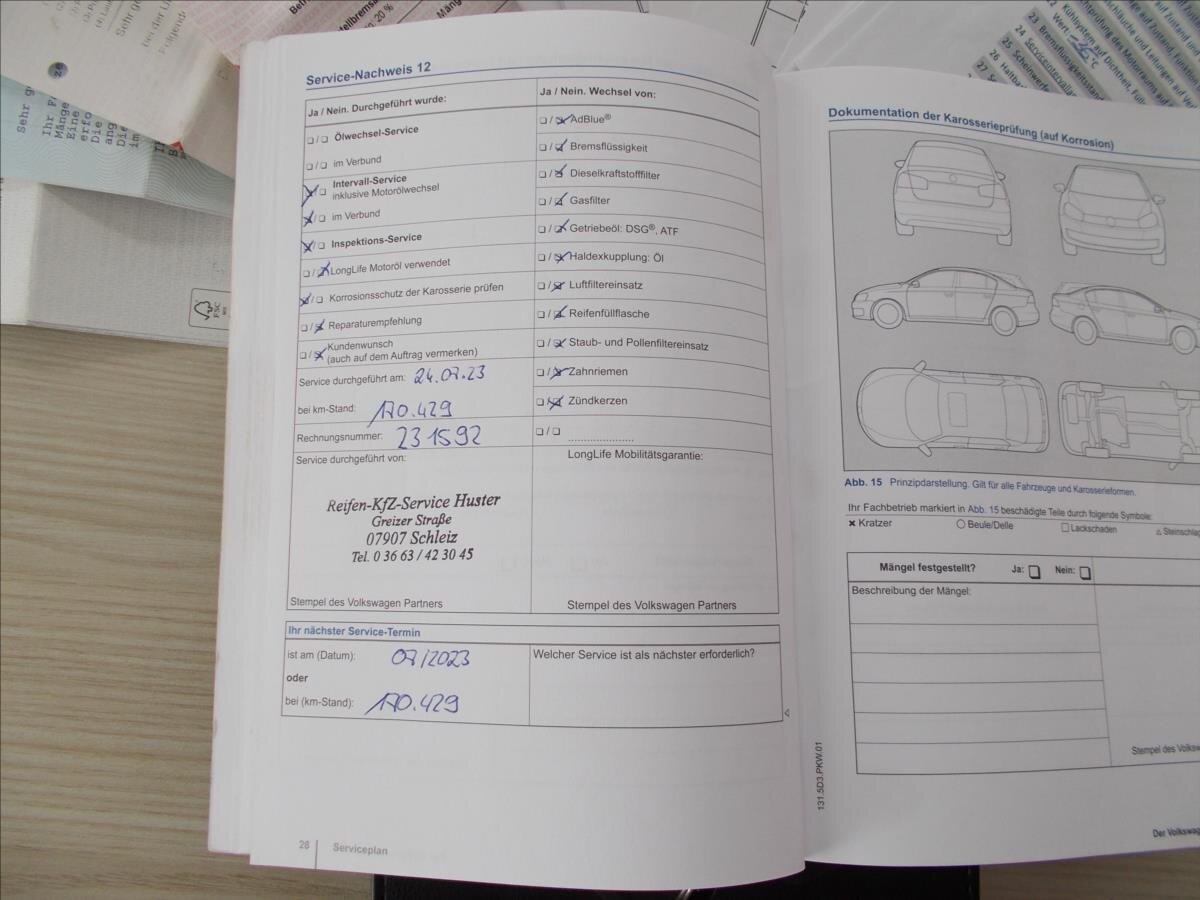 Service-Nachweis 12
Ja / Nein. Durchgeführt wurde:
❑/❑ Ölwechsel-Service
❑/❑ im Verbund
❑ Intervall-Service
inklusive Motorölwechsel
❑ im Verbund
❑ Inspektions-Service
❑/ LongLife Motoröl verwendet
/❑ Korrosionsschutz der Karosserie prüfen
❑/ Reparaturempfehlung
❑/ Kundenwunsch
(auch auf dem Auftrag vermerken)
Service durchgeführt am: 24.07.23
bei km-Stand: 170.429
Rechnungsnummer: 231592
Service durchgeführt von:
Reifen-KfZ-Service Huster
Greizer Straße
07907 Schleiz
Tel. 0 36 63 / 42 30 45
Stempel des Volkswagen Partners
Ja / Nein. Wechsel von:
❑/ AdBlue®
❑/ Bremsflüssigkeit
❑/ Dieselkraftstofffilter
❑/ Gasfilter
❑/ Getriebeöl: DSG®, ATF
❑/ Haldexkupplung: Öl
❑/ Luftfiltereinsatz
❑/ Reifenfüllflasche
❑/ Staub- und Pollenfiltereinsatz
❑/ Zahnriemen
❑/ Zündkerzen
❑/❑ ......................
LongLife Mobilitätsgarantie:
Stempel des Volkswagen Partners
Ihr nächster Service-Termin
ist am (Datum): 07/2023
oder
bei (km-Stand): 170.429
Welcher Service ist als nächster erforderlich?
28 Serviceplan
Dokumentation der Karosserieprüfung (auf Korrosion)
Abb. 15 Prinzipdarstellung. Gilt für alle Fahrzeuge und Karosserieformen.
Ihr Fachbetrieb markiert in Abb. 15 beschädigte Teile durch folgende Symbole:
× Kratzer ○ Beule/Delle □ Lackschaden △ Steinschlag
Mängel festgestellt? Ja: ❑ Nein: ❑
Beschreibung der Mängel:
Stempel des Volksw
131.5D3.PKW.01
Der Volkswag
FSC